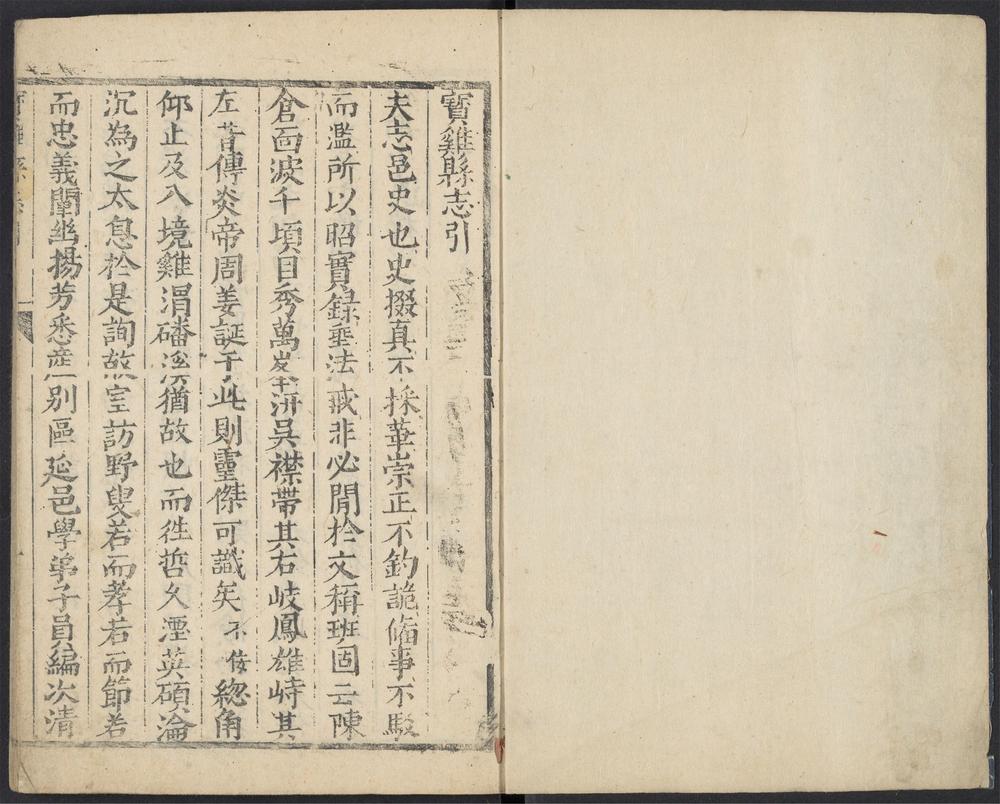 寳雞縣志引
夫志邑史也史掇真不採華崇正不釣詭偹事不駁
而濫所以昭實録垂法戒非必閒於文稱班固云陳
倉面波千頃目秀萬岑汧吳襟帶其右岐鳳雄峙其
左昔傳炎帝周姜誕于此則靈傑可識矣不佞總角
仰止及入境雞渭磻溪猶故也而徃哲久湮英碩淪
沉為之太息於是詢故室訪野叟若而孝若而節若
而忠義闡幽揚芳悉産別區延邑學弟子員編次清